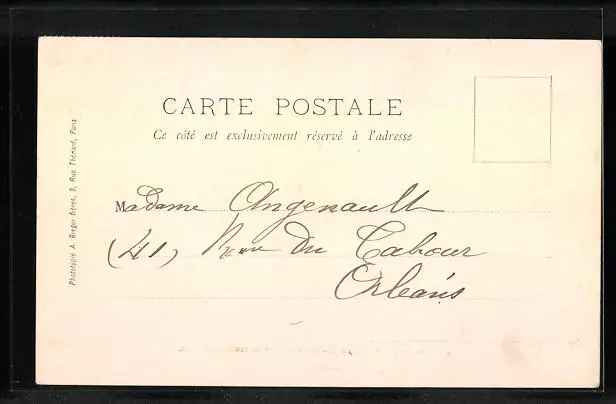 CARTE POSTALE
Ce côté est exclusivement réservé à l'adresse
Madame Angenault
(41) Rue Du Tabour
Orléans
Phototypie A. Bergeret frères, 9, Rue Thénard, Paris